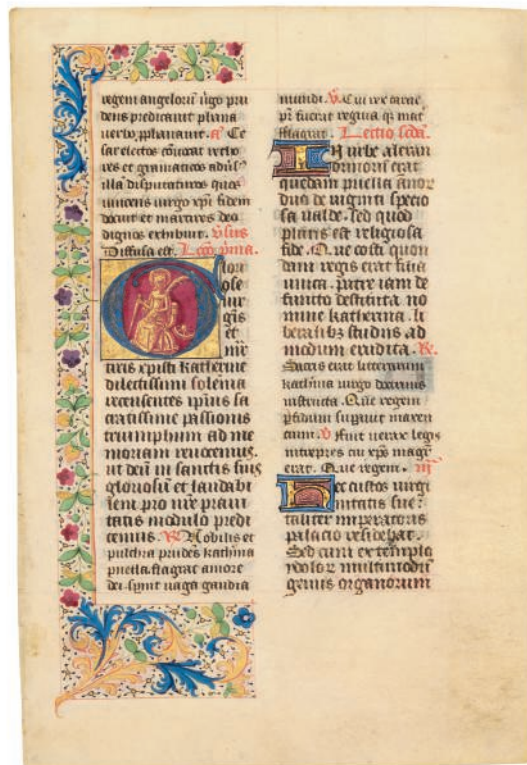 regem angelorū ūgo pru
dens predicavit plana
verbo pphanavit. a͛ Ce
sar electos cōvocat retho
res et gramaticos adūs
illā disputaturos quos
vincens virgo xpī fidem
docuit et martires deo
dignos exhibuit. v̄sus
Diffusa est. Lcc̄o p̄ma.
Glori
ose
vir
gīs
et
mr̄
tiris xpisti katherine
dilectissimi solenia
recensentes ipīus sa
cratissime passionis
triumphum ad me
moriam revocemus.
ut deū in sanctis suis
gloriosū et laudabi
lem pro nr̄e pravi
tatis modulo predi
cemus. R̷ Nobilis et
pulchra prudēs kathīna
puella. flagrat amore
dei. spernit vaga gaudia
mundi. v̷. Cui rex carne
pr̄ fuerat regina q̄ mat̄
flagrat. Lectio scd̄a.
IN urbe alexan
drinorū erat
quedam puella annor
duo de viginti specio
sa valde. sed quod
pluris est religiosa
fide. Que costi quon
dam regis erat filia
unica. patre iam de
functo destituta no
mine katherina. li
beralibz studiis ad
modum erudita. R̷.
Sacris erat litterarum
kathīna virgo docmīs
instructa. Que regem
p̄fidum supavit maxen
cium. v̷
erat. Que regem. iii
Hec custos virgi
nitatis sue:
taliter imperatoris
palacio residebat.
Sed cum extemplo
ydolor̄ multimodū
genus organorum